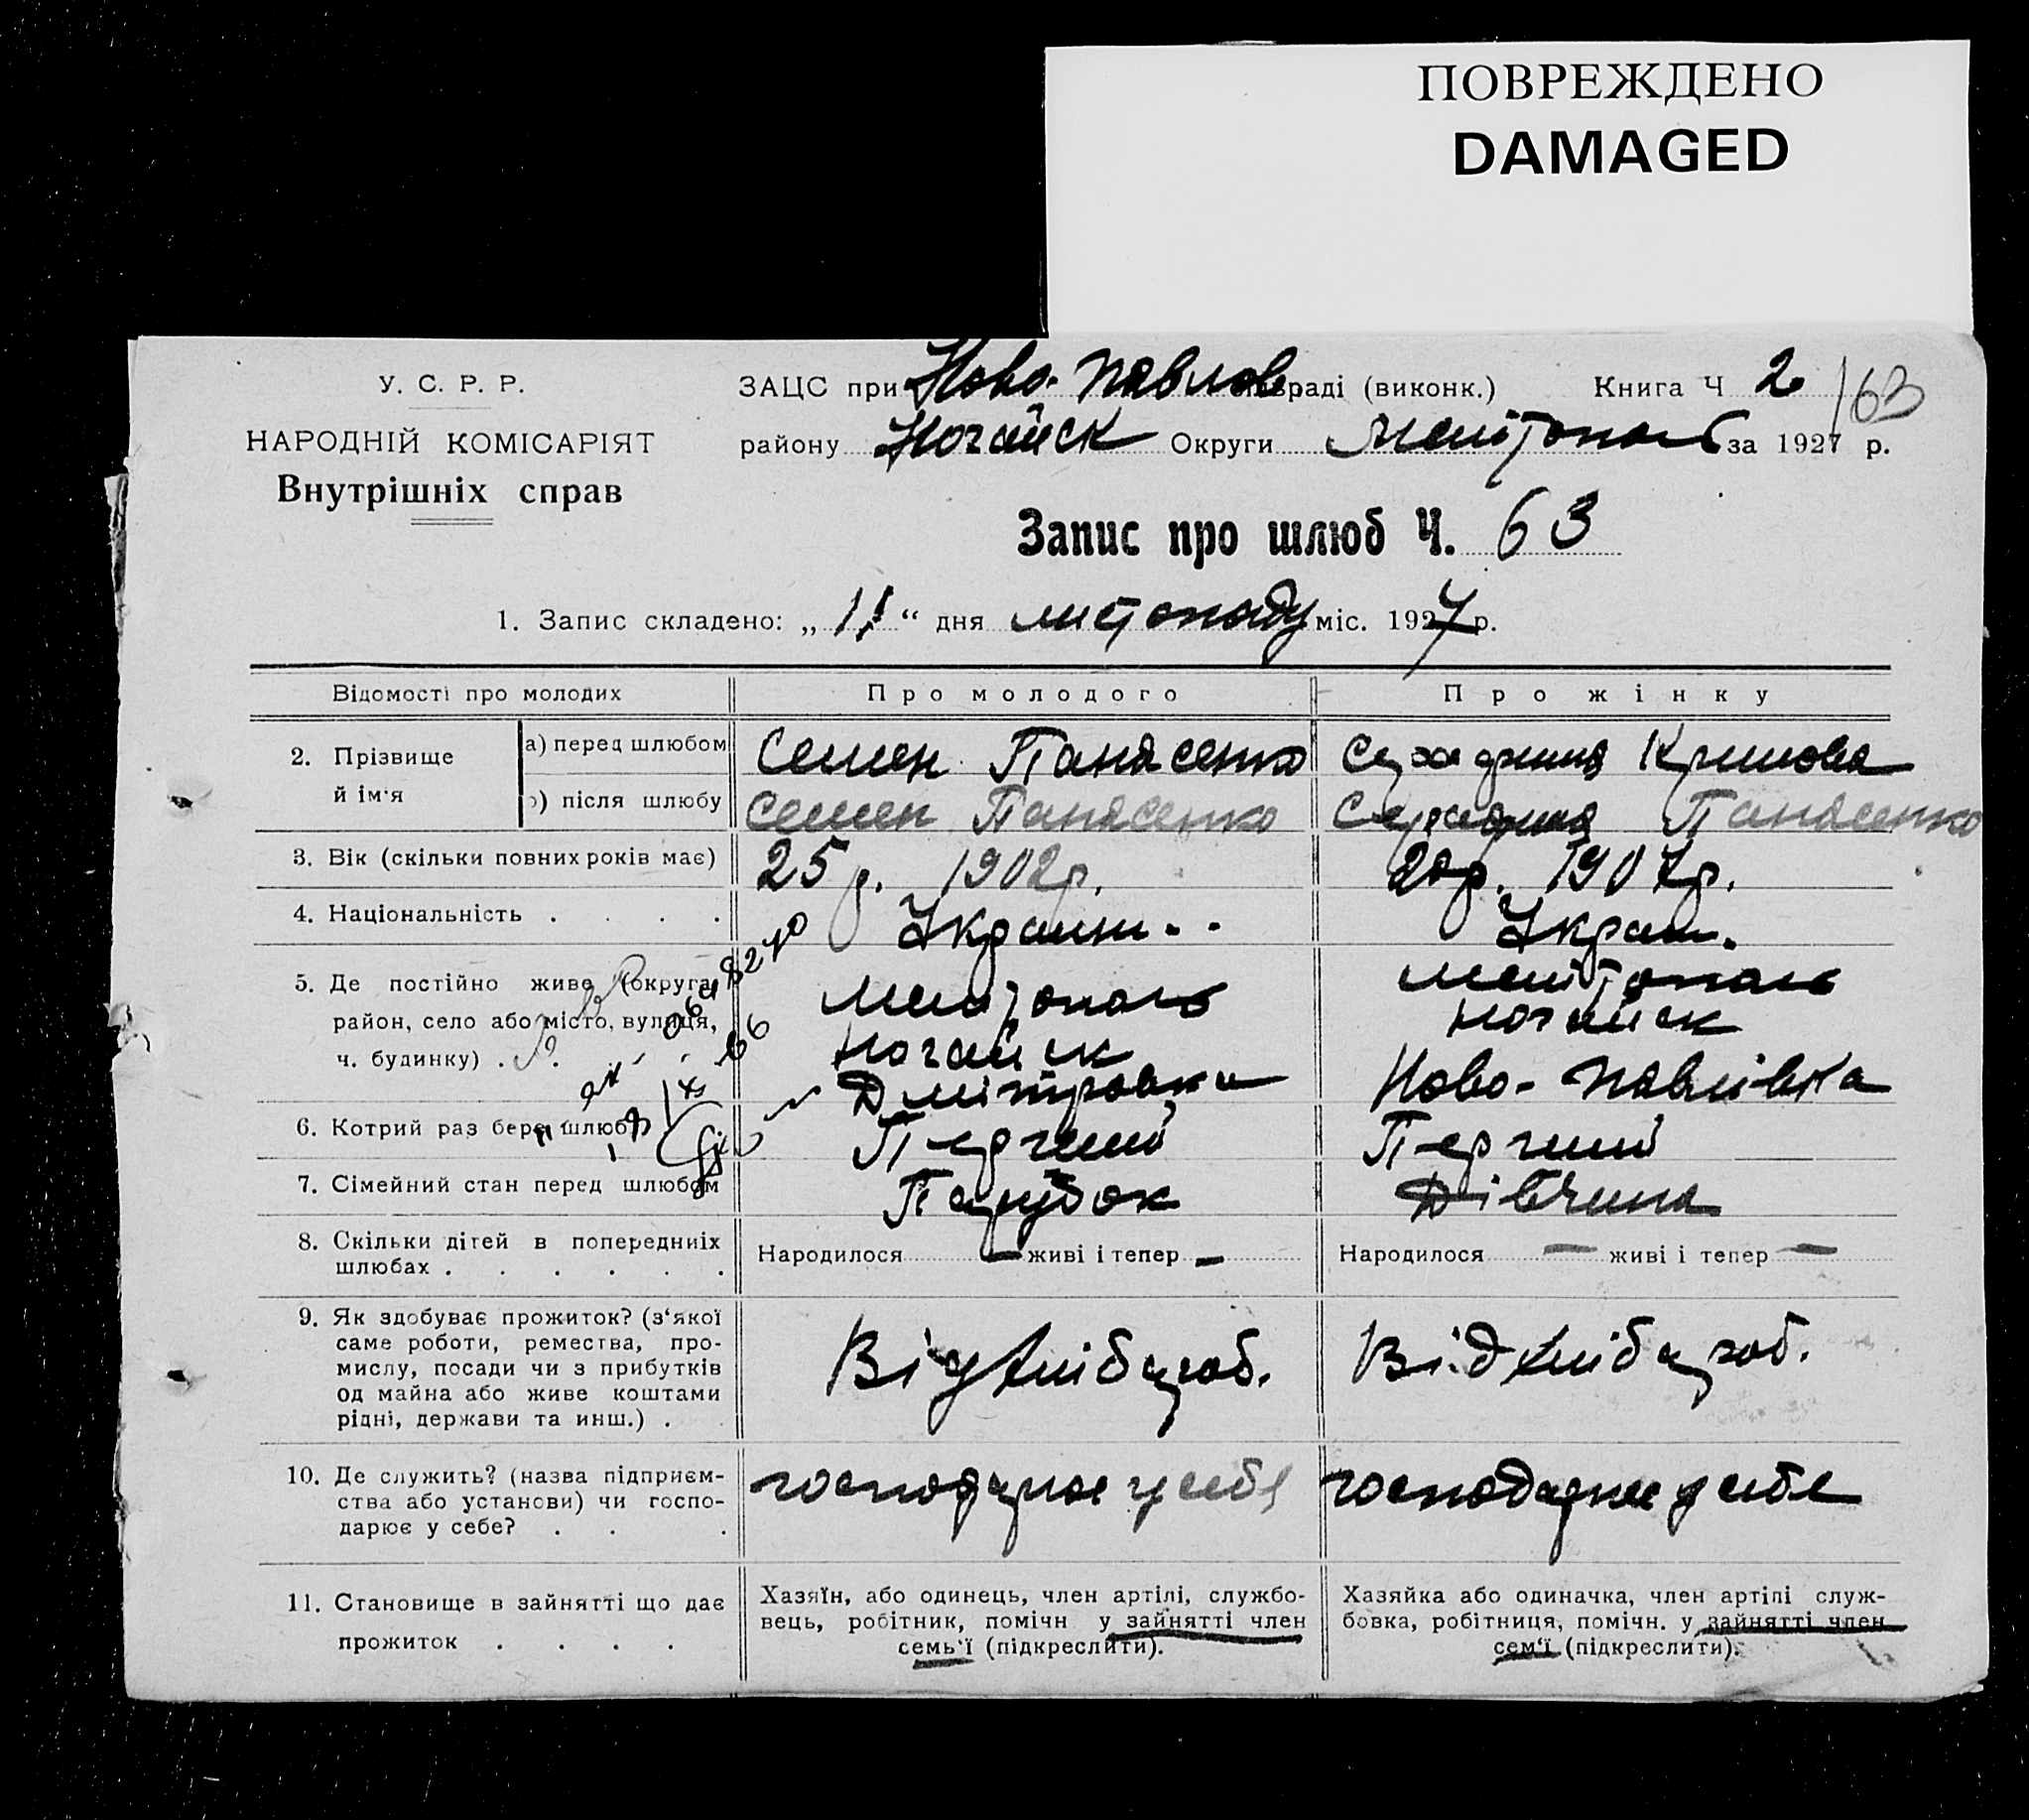 ПОВРЕЖДЕНО
DAMAGED
У. С. Р. Р.
НАРОДНІЙ КОМІСАРІЯТ
Внутрішніх справ
ЗАЦС при Ново-Павлов раді (виконк.) Книга Ч 2 /63
району Ногайск Округи Мелітополь за 1927 р.
Запис про шлюб Ч. 63
1. Запис складено: „ 11 “ дня листопаду міс. 1927 р.
Відомості про молодих
Про молодого
Про жінку
2. Прізвище й ім'я
а) перед шлюбом
Семен Панасенко
Кримова
б) після шлюбу
Семен Панасенко
Панасенко
3. Вік (скільки повних років має)
25 р. 1902 р.
20 р. 1907 р.
4. Національність . . . .
Украин..
Украи.
5. Де постійно живе (округа,
район, село або місто, вулиця,
ч. будинку) . .
Мелітополь
Ногайск
Дмітровка
Мелітополь
Ногайск
Ново-Павлівка
6. Котрий раз бере шлюб?
Перший
Перший
7. Сімейний стан перед шлюбом
Парубок
Дівчина
8. Скільки дітей в попередніх
шлюбах . . . . . .
Народилося — живі і тепер —
Народилося — живі і тепер —
9. Як здобуває прожиток? (з'якої
саме роботи, ремества, про-
мислу, посади чи з прибутків
од майна або живе коштами
рідні, держави та инш.) .
Від хлібороб.
Від хлібороб.
10. Де служить? (назва підприєм-
ства або установи) чи госпо-
дарює у себе? . . .
господарює у себе
господарює у себе
11. Становище в зайнятті що дає
прожиток . . . .
Хазяїн, або одинець, член артілі, службо-
вець, робітник, помічн у зайнятті член
семь'ї (підкреслити).
Хазяйка або одиначка, член артілі служ-
бовка, робітниця, помічн. у зайнятті член
сем'ї (підкреслити).